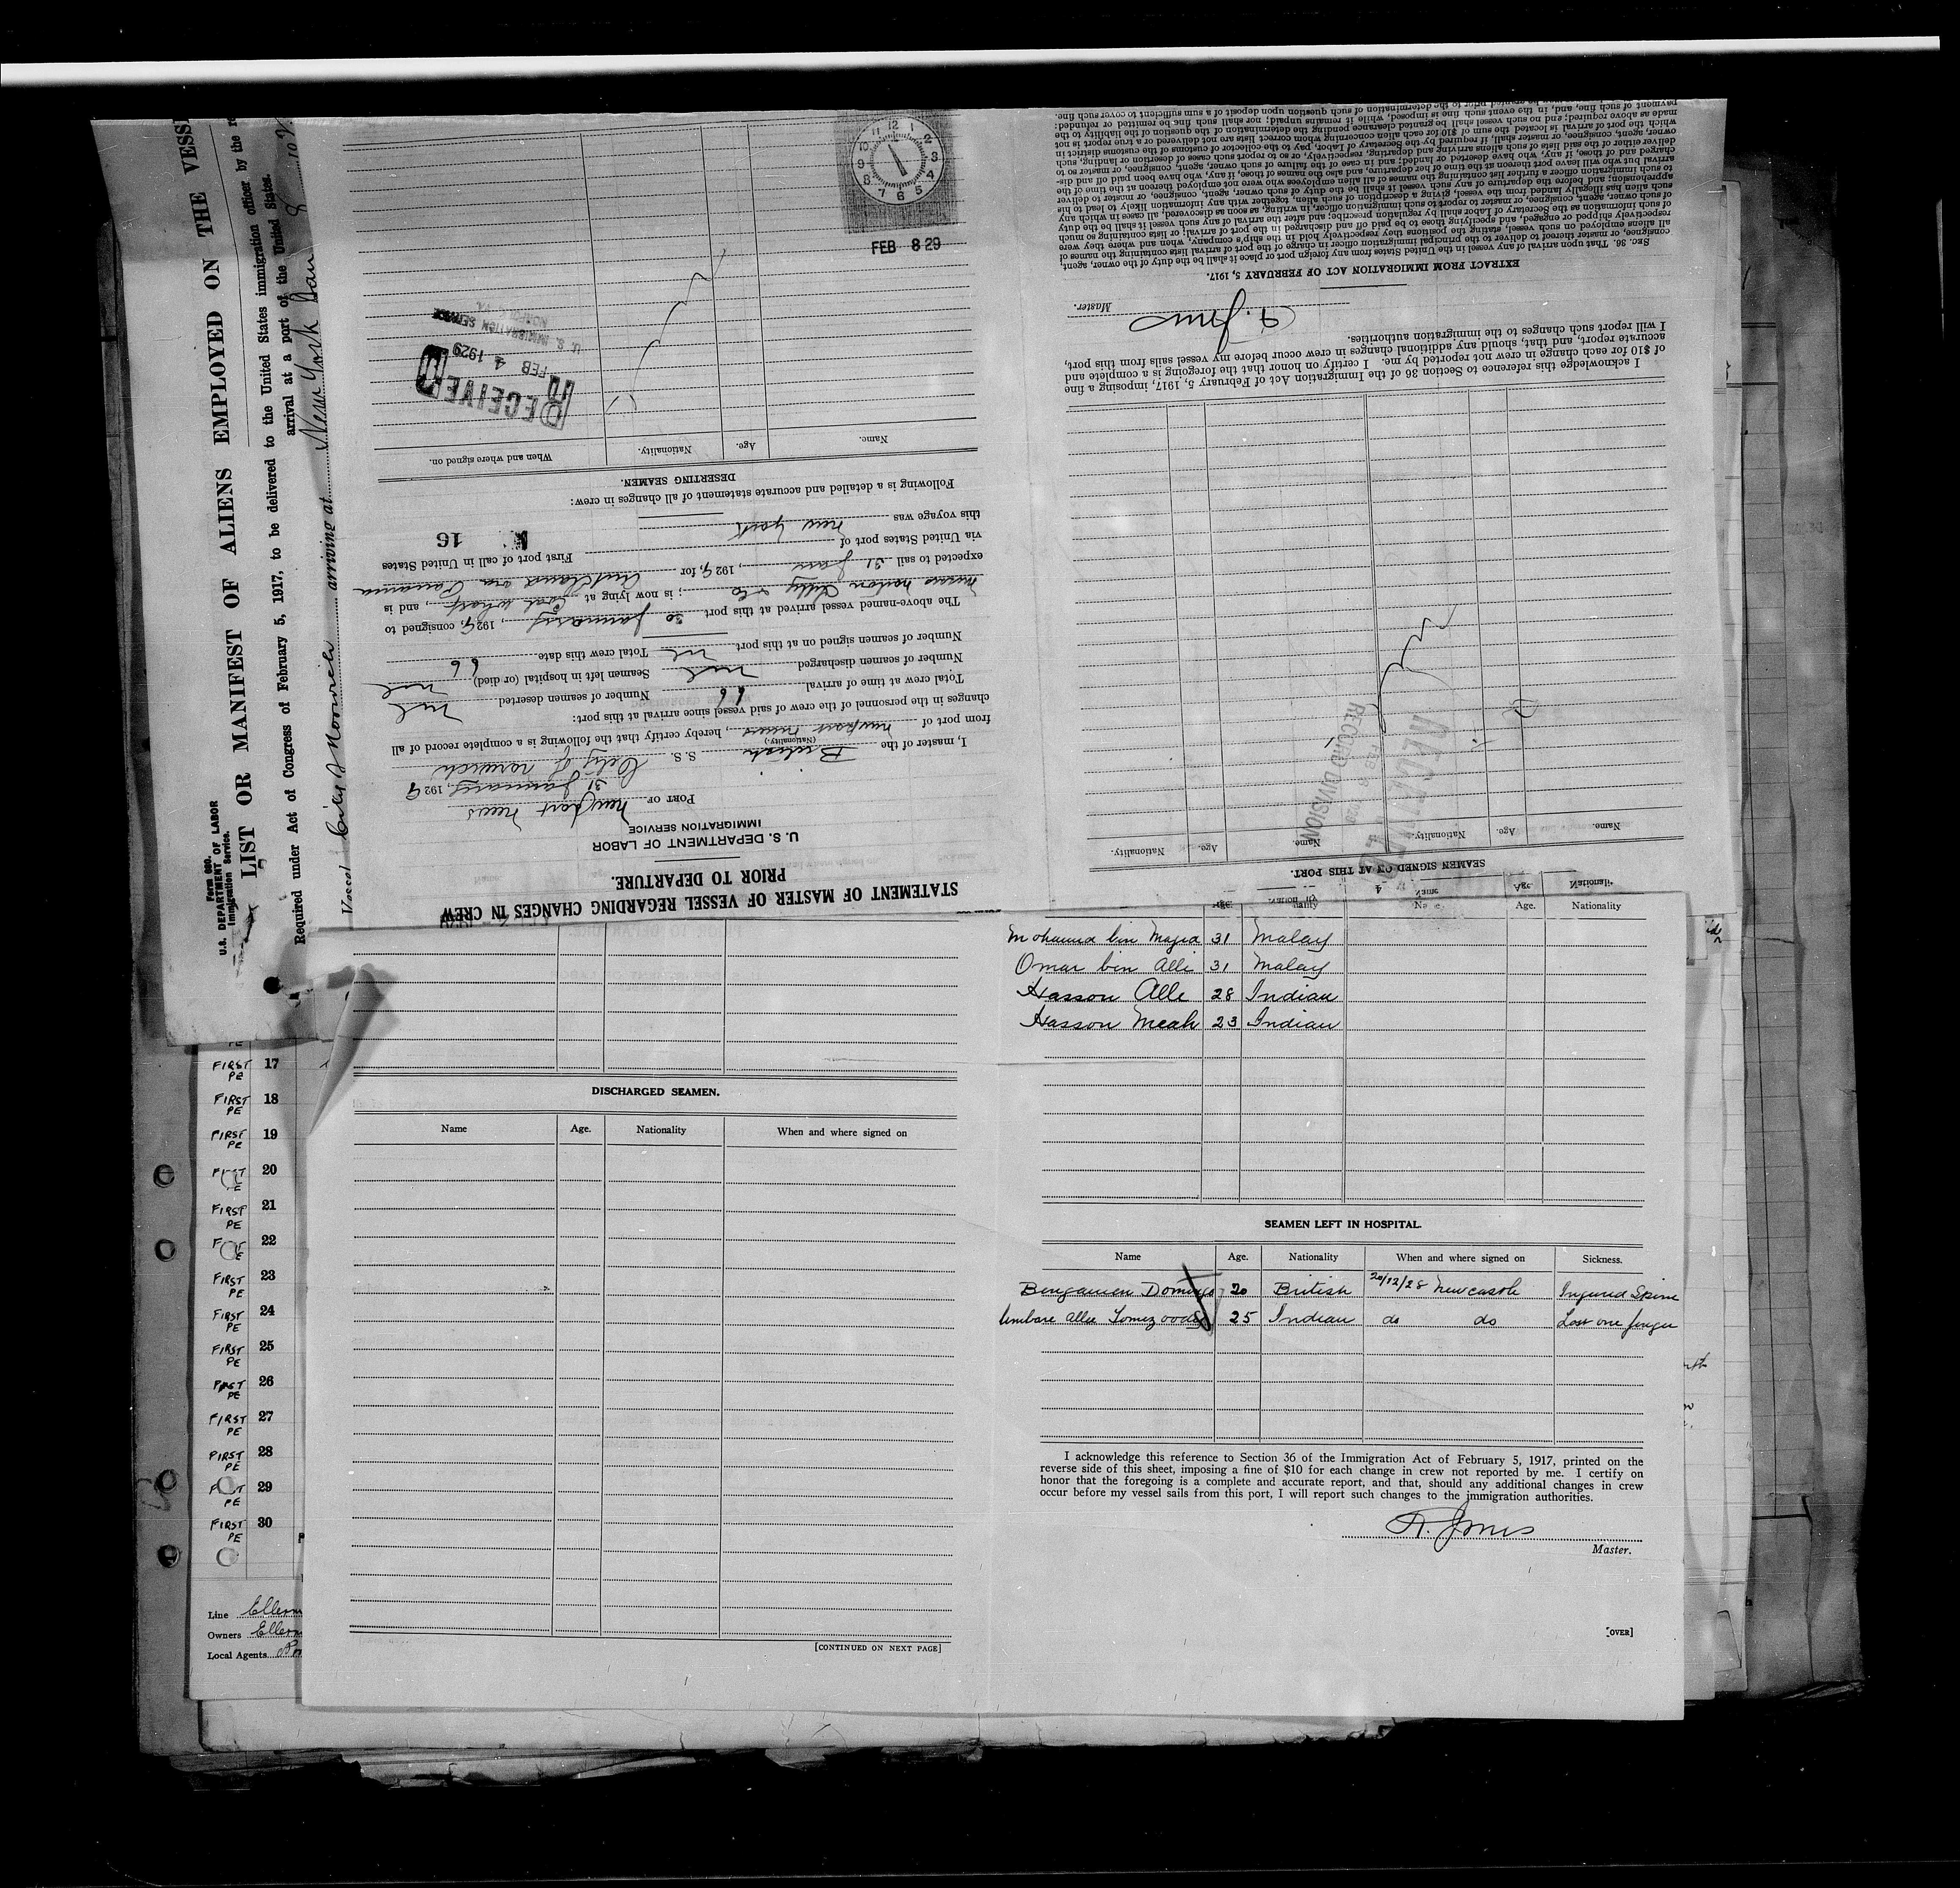 Form 680.
U.S. DEPARTMENT OF LABOR
Immigration Service.
LIST OR MANIFEST OF ALIENS EMPLOYED ON THE VESS
Required under Act of Congress of February 5, 1917, to be delivered to the United States immigration officer by the
arrival at a port of the United States.
Vessel City of Norwich arriving at New York Jan
STATEMENT OF MASTER OF VESSEL REGARDING CHANGES IN CREW
PRIOR TO DEPARTURE.
U. S. DEPARTMENT OF LABOR
IMMIGRATION SERVICE
PORT OF Newport News
31 January, 1929
I, master of the British S. S. City of Norwich
(Nationality.)
from port of Newport News, hereby certify that the following is a complete record of all
changes in the personnel of the crew of said vessel since arrival at this port:
Total crew at time of arrival 66 Number of seamen deserted nil
Number of seamen discharged nil Seamen left in hospital (or died) nil
Number of seamen signed on at this port nil Total crew this date 66
The above-named vessel arrived at this port 30 January, 1929, consigned to
Messrs Norton Lilly & Co; is now lying at Coal wharf, and is
expected to sail 31 Jan, 1929, for Auckland via Panama
via United States port of First port of call in United States
this voyage was New York 16
Following is a detailed and accurate statement of all changes in crew:
DESERTING SEAMEN.
Name. Age. Nationality. When and where signed on.
RECEIVED
FEB 4 1929
U. S. IMMIGRATION SERVICE
12 1 2 3 4 5 6 7 8 9 10 11
FEB 8 29
SEAMEN SIGNED ON AT THIS PORT.
Name. Age. Nationality. Name. Age. Nationality.
RECORD DIVISION
I acknowledge this reference to Section 36 of the Immigration Act of February 5, 1917, imposing a fine
of $10 for each change in crew not reported by me. I certify on honor that the foregoing is a complete and
accurate report, and that, should any additional changes in crew occur before my vessel sails from this port,
I will report such changes to the immigration authorities.
A. Jones
Master.
EXTRACT FROM IMMIGRATION ACT OF FEBRUARY 5, 1917.
Sec. 36. That upon arrival of any vessel in the United States from any foreign port or place it shall be the duty of the owner, agent,
consignee, or master thereof to deliver to the principal immigration officer in charge of the port of arrival lists containing the names of
all aliens employed on such vessel, stating the positions they respectively hold in the ship's company, when and where they were
respectively shipped or engaged, and specifying those to be paid off and discharged in the port of arrival; or lists containing so much
of such information as the Secretary of Labor shall by regulation prescribe; and after the arrival of any such vessel it shall be the duty
of such owner, agent, consignee, or master to report to such immigration officer, in writing, as soon as discovered, all cases in which any
such alien has illegally landed from the vessel, giving a description of such alien, together with any information likely to lead to his
apprehension; and before the departure of any such vessel it shall be the duty of such owner, agent, consignee, or master to deliver
to such immigration officer a further list containing the names of all alien employees who were not employed thereon at the time of the
arrival but who will leave port thereon at the time of her departure, and also the names of those, if any, who have been paid off and dis-
charged and of those, if any, who have deserted or landed; and in case of the failure of such owner, agent, consignee, or master so to
deliver either of the said lists of such aliens arriving and departing, respectively, or so to report such cases of desertion or landing, such
owner, agent, consignee, or master shall, if required by the Secretary of Labor, pay to the collector of customs of the customs district in
which the port of arrival is located the sum of $10 for each alien concerning whom correct lists are not delivered or a true report is not
made as above required; and no such vessel shall be granted clearance pending the determination of the question of the liability to the
payment of such fine, and, in the event such fine is imposed, while it remains unpaid; nor shall such fine be remitted or refunded:
FIRST PE 17
FIRST PE 18
FIRST PE 19
PE 20
FIRST PE 21
22
FIRST PE 23
FIRST PE 24
FIRST PE 25
FIRST PE 26
FIRST PE 27
FIRST PE 28
PE 29
FIRST PE 30
Line
Owners
Local Agents
DISCHARGED SEAMEN.
Name Age. Nationality When and where signed on
[CONTINUED ON NEXT PAGE]
Age. Nationality
Mohamed bin Majid 31 Malay
Omar bin Alli 31 Malay
Hasson Alle 28 Indian
Hasson Meah 23 Indian
SEAMEN LEFT IN HOSPITAL.
Name Age. Nationality When and where signed on Sickness.
Bengamen Domingo 20 British 20/12/28 Newcastle Injured Spine
Allie 25 Indian do do Lost one finger
I acknowledge this reference to Section 36 of the Immigration Act of February 5, 1917, printed on the
reverse side of this sheet, imposing a fine of $10 for each change in crew not reported by me. I certify on
honor that the foregoing is a complete and accurate report, and that, should any additional changes in crew
occur before my vessel sails from this port, I will report such changes to the immigration authorities.
A. Jones
Master.
[OVER]